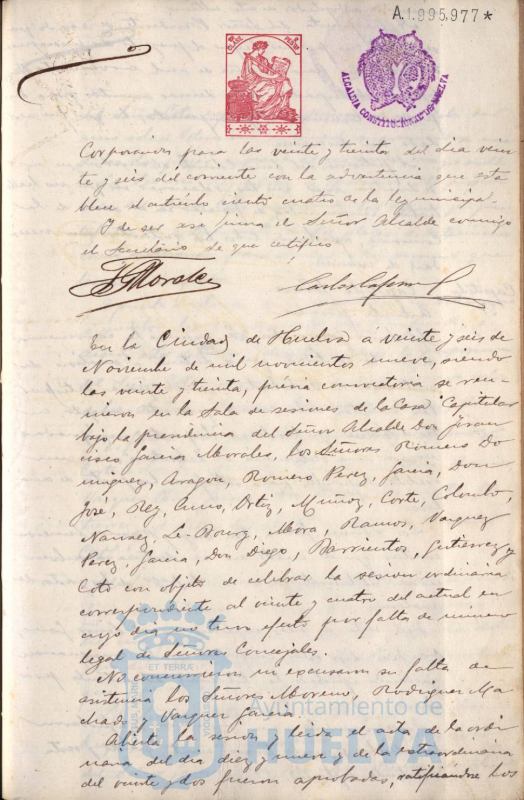 A.1.995,977*
ALCALDIA CONSTITUCIONAL DE HUELVA
Corporacion para las veinte y treinta del dia vein
te y seis del corriente con la advertencia que esta
blece el articulo ciento cuatro de la ley municipal.
Y de ser asi firma el Señor Alcalde conmigo
el Secretario de que certifico
En la Ciudad de Huelva á veinte y seis de
Noviembre de mil novecientos nueve, siendo
las veinte y treinta, prévia convocatoria se reu-
nieron en la Sala de sesiones de la Casa Capitular
bajo la presidencia del Señor Alcalde Don Fran
cisco Garcia Morales, los Señores Romero Do
minguez, Aragon, Romero Perez, Garcia, Don
José, Rey, Cano, Ortiz, Muñoz, Corte, Colombo,
Narvaez, Le-Bourg, Mora, Ramos, Vazquez
Perez, Garcia, Don Diego, Barrientos, Gutierrez y
Coto con objeto de celebrar la sesion ordinaria
correspondiente al veinte y cuatro del actual en
cuyo dia no tuvo efecto por falta de número
legal de Señores Concejales.
No concurrieron ni excusaron su falta de
asistencia los Señores Moreno, Rodriguez Ma
chado y Vazquez Garcia
Abierta la sesion y leida el acta de la ordi
naria del dia diez y nueve y de la extraordinaria
del veinte y dos fueron aprobadas, ratificandose los
Ayuntamiento de
HUELVA